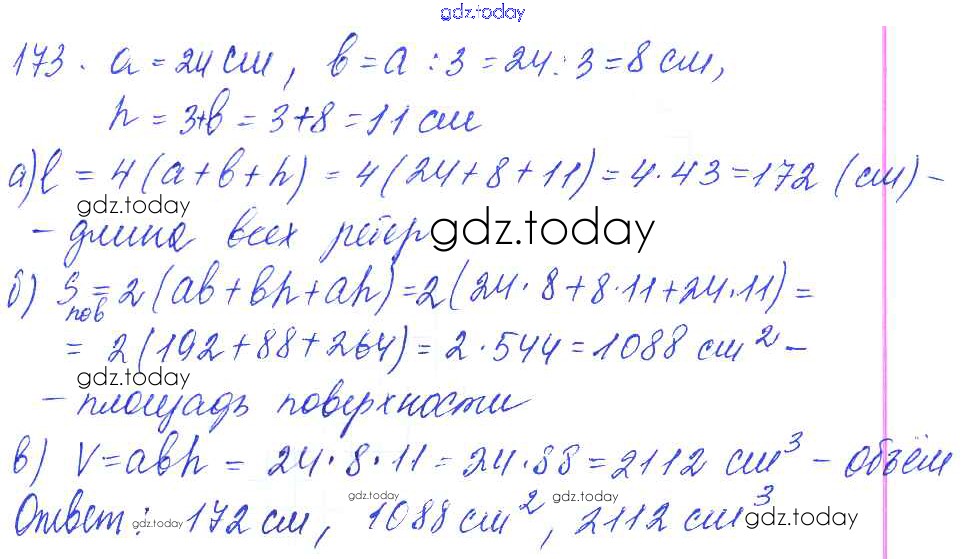 gdz.today
173. a = 24 см, b = a : 3 = 24 : 3 = 8 см,
h = 3+b = 3+8 = 11 см
а) l = 4(a+b+h) = 4(24+8+11) = 4·43 = 172 (см) –
gdz.today
– длина всех рёбер gdz.today
б) Sпов = 2(ab+bh+ah) = 2(24·8+8·11+24·11) =
= 2(192+88+264) = 2·544 = 1088 см² –
gdz.today
– площадь поверхности
в) V = abh = 24·8·11 = 24·88 = 2112 см³ – объём
gdz.today gdz.today gdz.today
Ответ: 172 см, 1088 см², 2112 см³